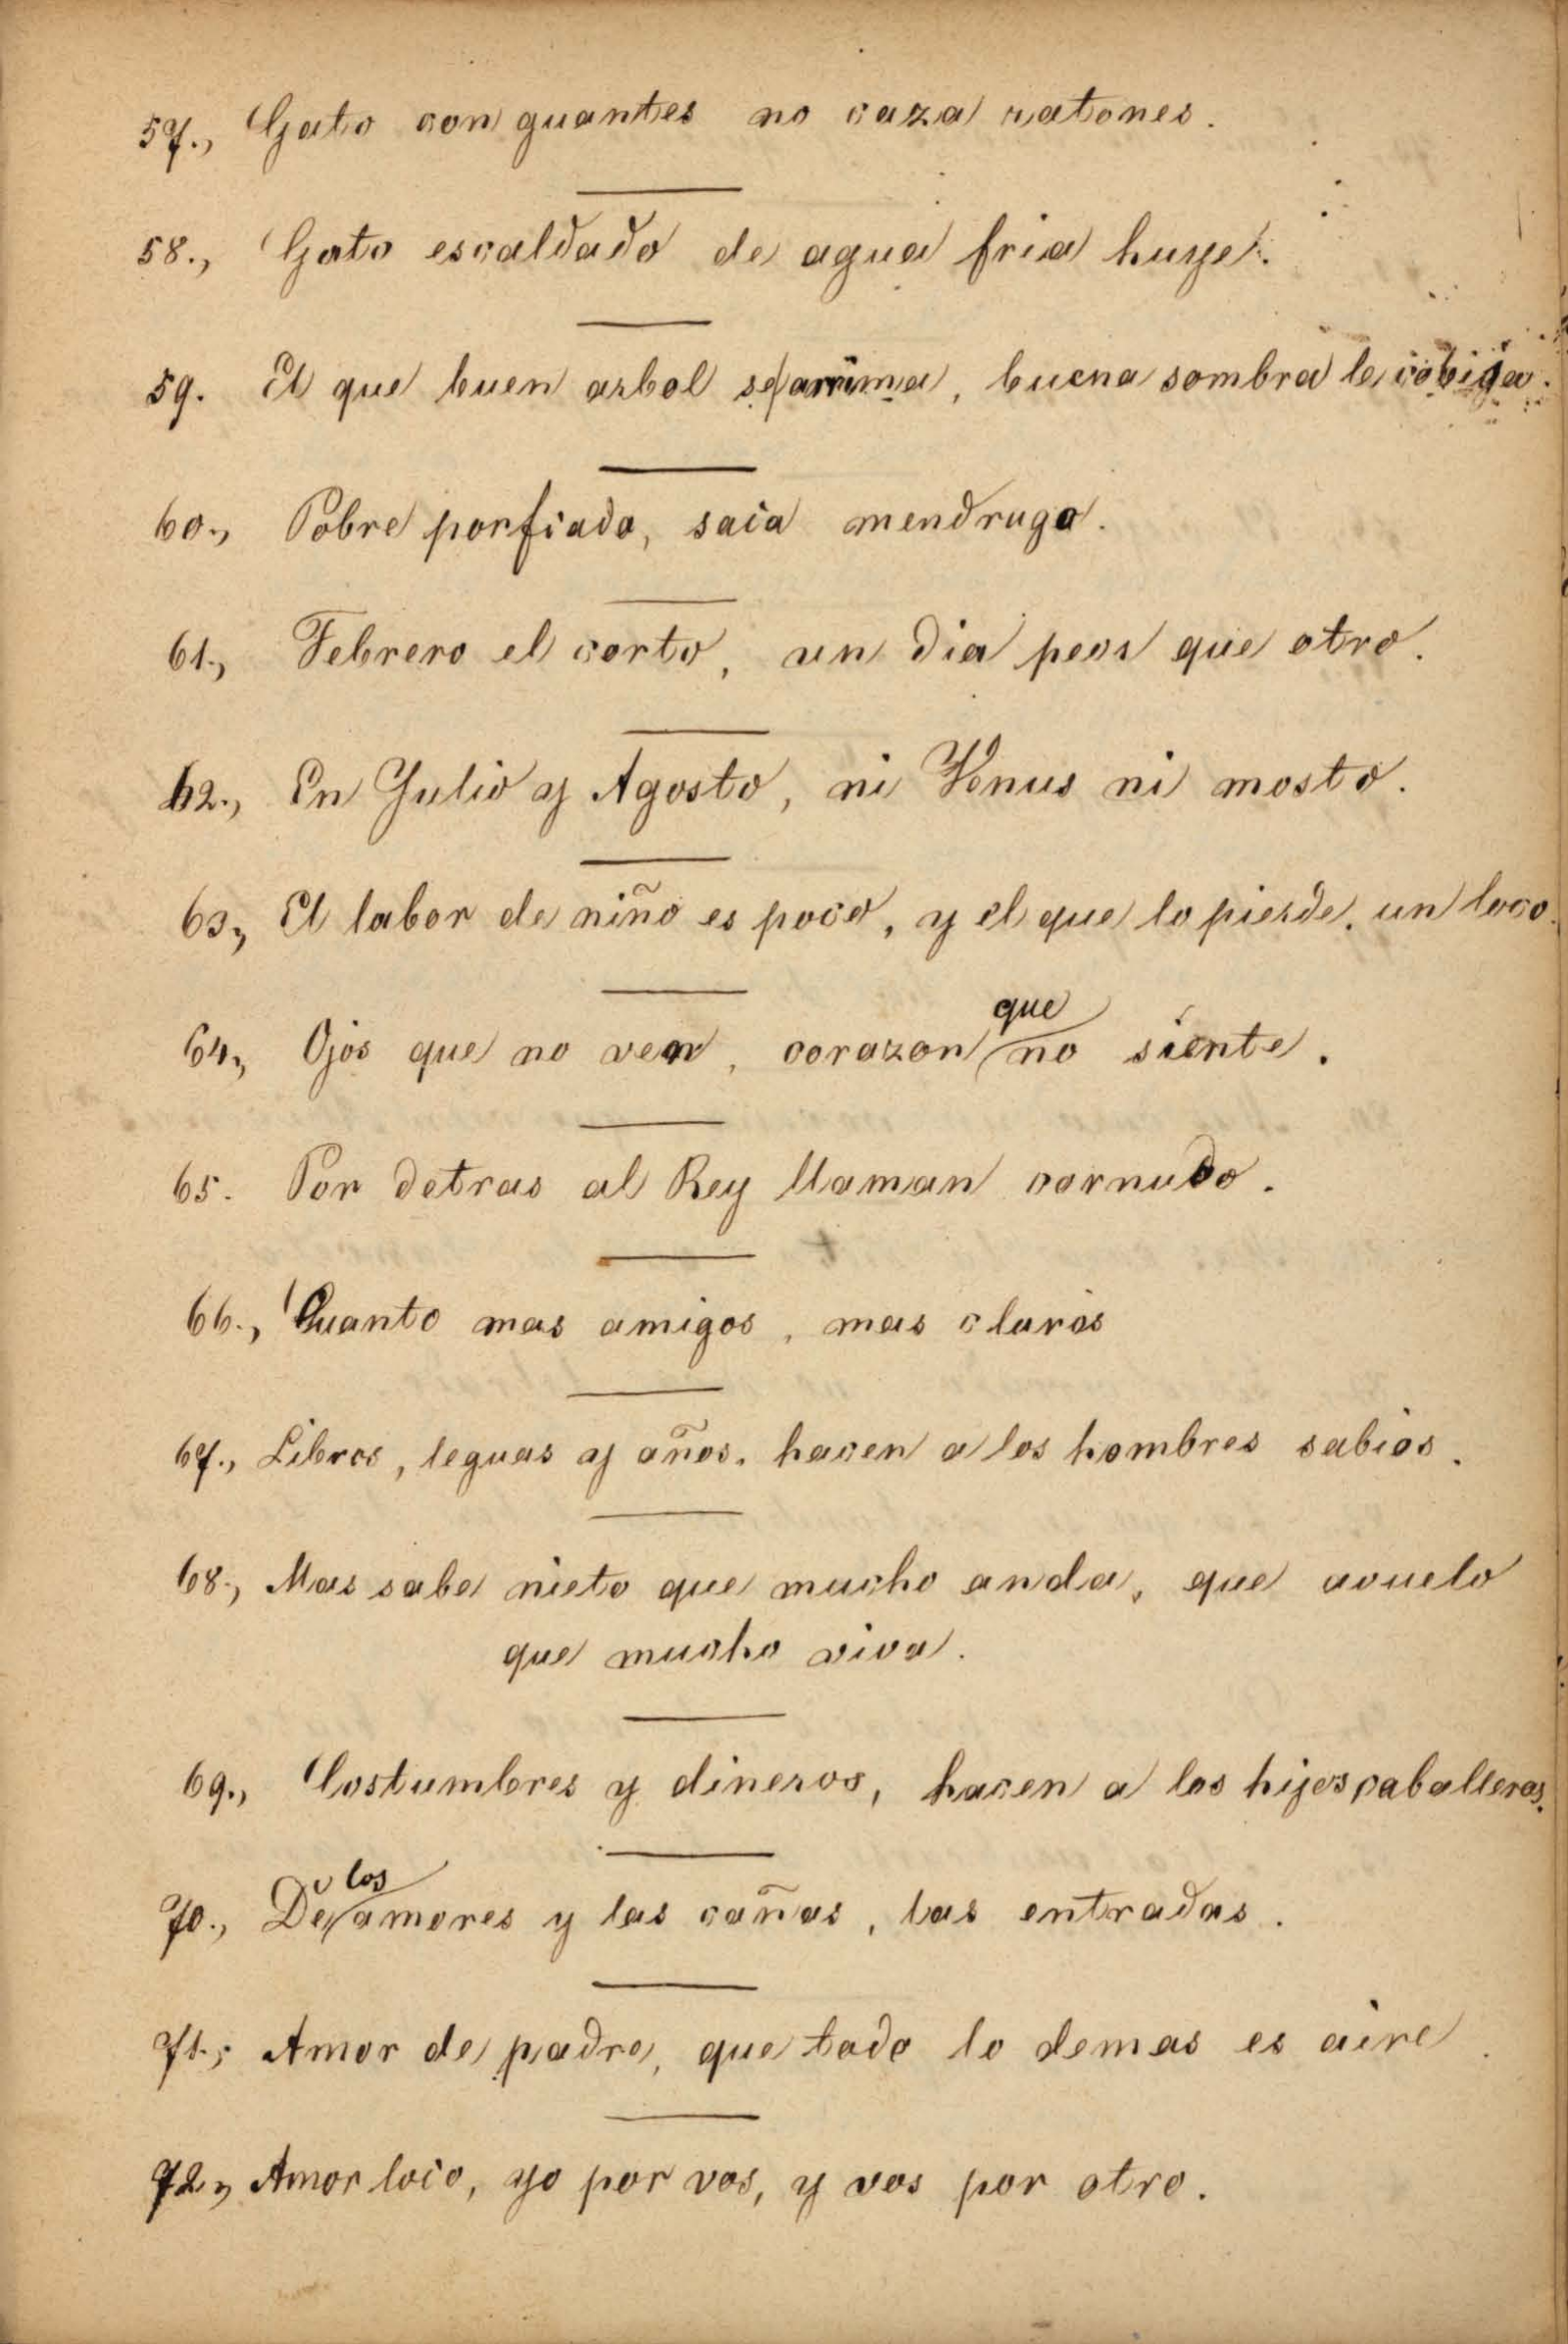 57., Gato con guantes no caza ratones.
58., Gato escaldado de agua fria huye.
59. El que buen arbol se arrima, buena sombra le cobija.
60., Pobre porfiado, saca mendrugo.
61., Febrero el corto, un dia peor que otro.
62., En Julio y Agosto, ni Venus ni mosto.
63., El labor de niño es poco, y el que lo pierde, un loco.
64., Ojos que no ven, corazon que no siente.
65. Por detras al Rey llaman cornudo.
66., Cuanto mas amigos, mas claros
67., Libros, leguas y años, hacen a los hombres sabios.
68., Mas sabe nieto que mucho anda, que avuelo
que mucho viva.
69., Costumbres y dineros, hacen a los hijos caballeros.
70., De los amores y las cañas, las entradas.
71., Amor de padre, que todo lo demas es aire.
72., Amor loco, yo por vos, y vos por otro.